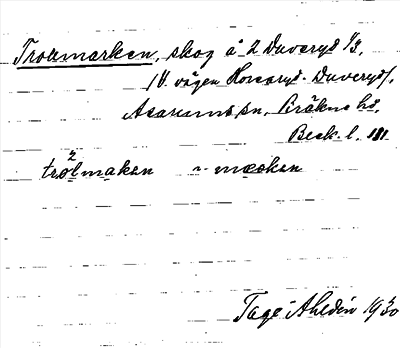 Trollmarken, skog å 2 Duveryd 1/3,
/V. vägen Horsaryd - Duveryd/,
Asarums sn, Bräkne hd,
Beck. l. III
trolmaken ~ mæsken
Tage Ahldin 1930